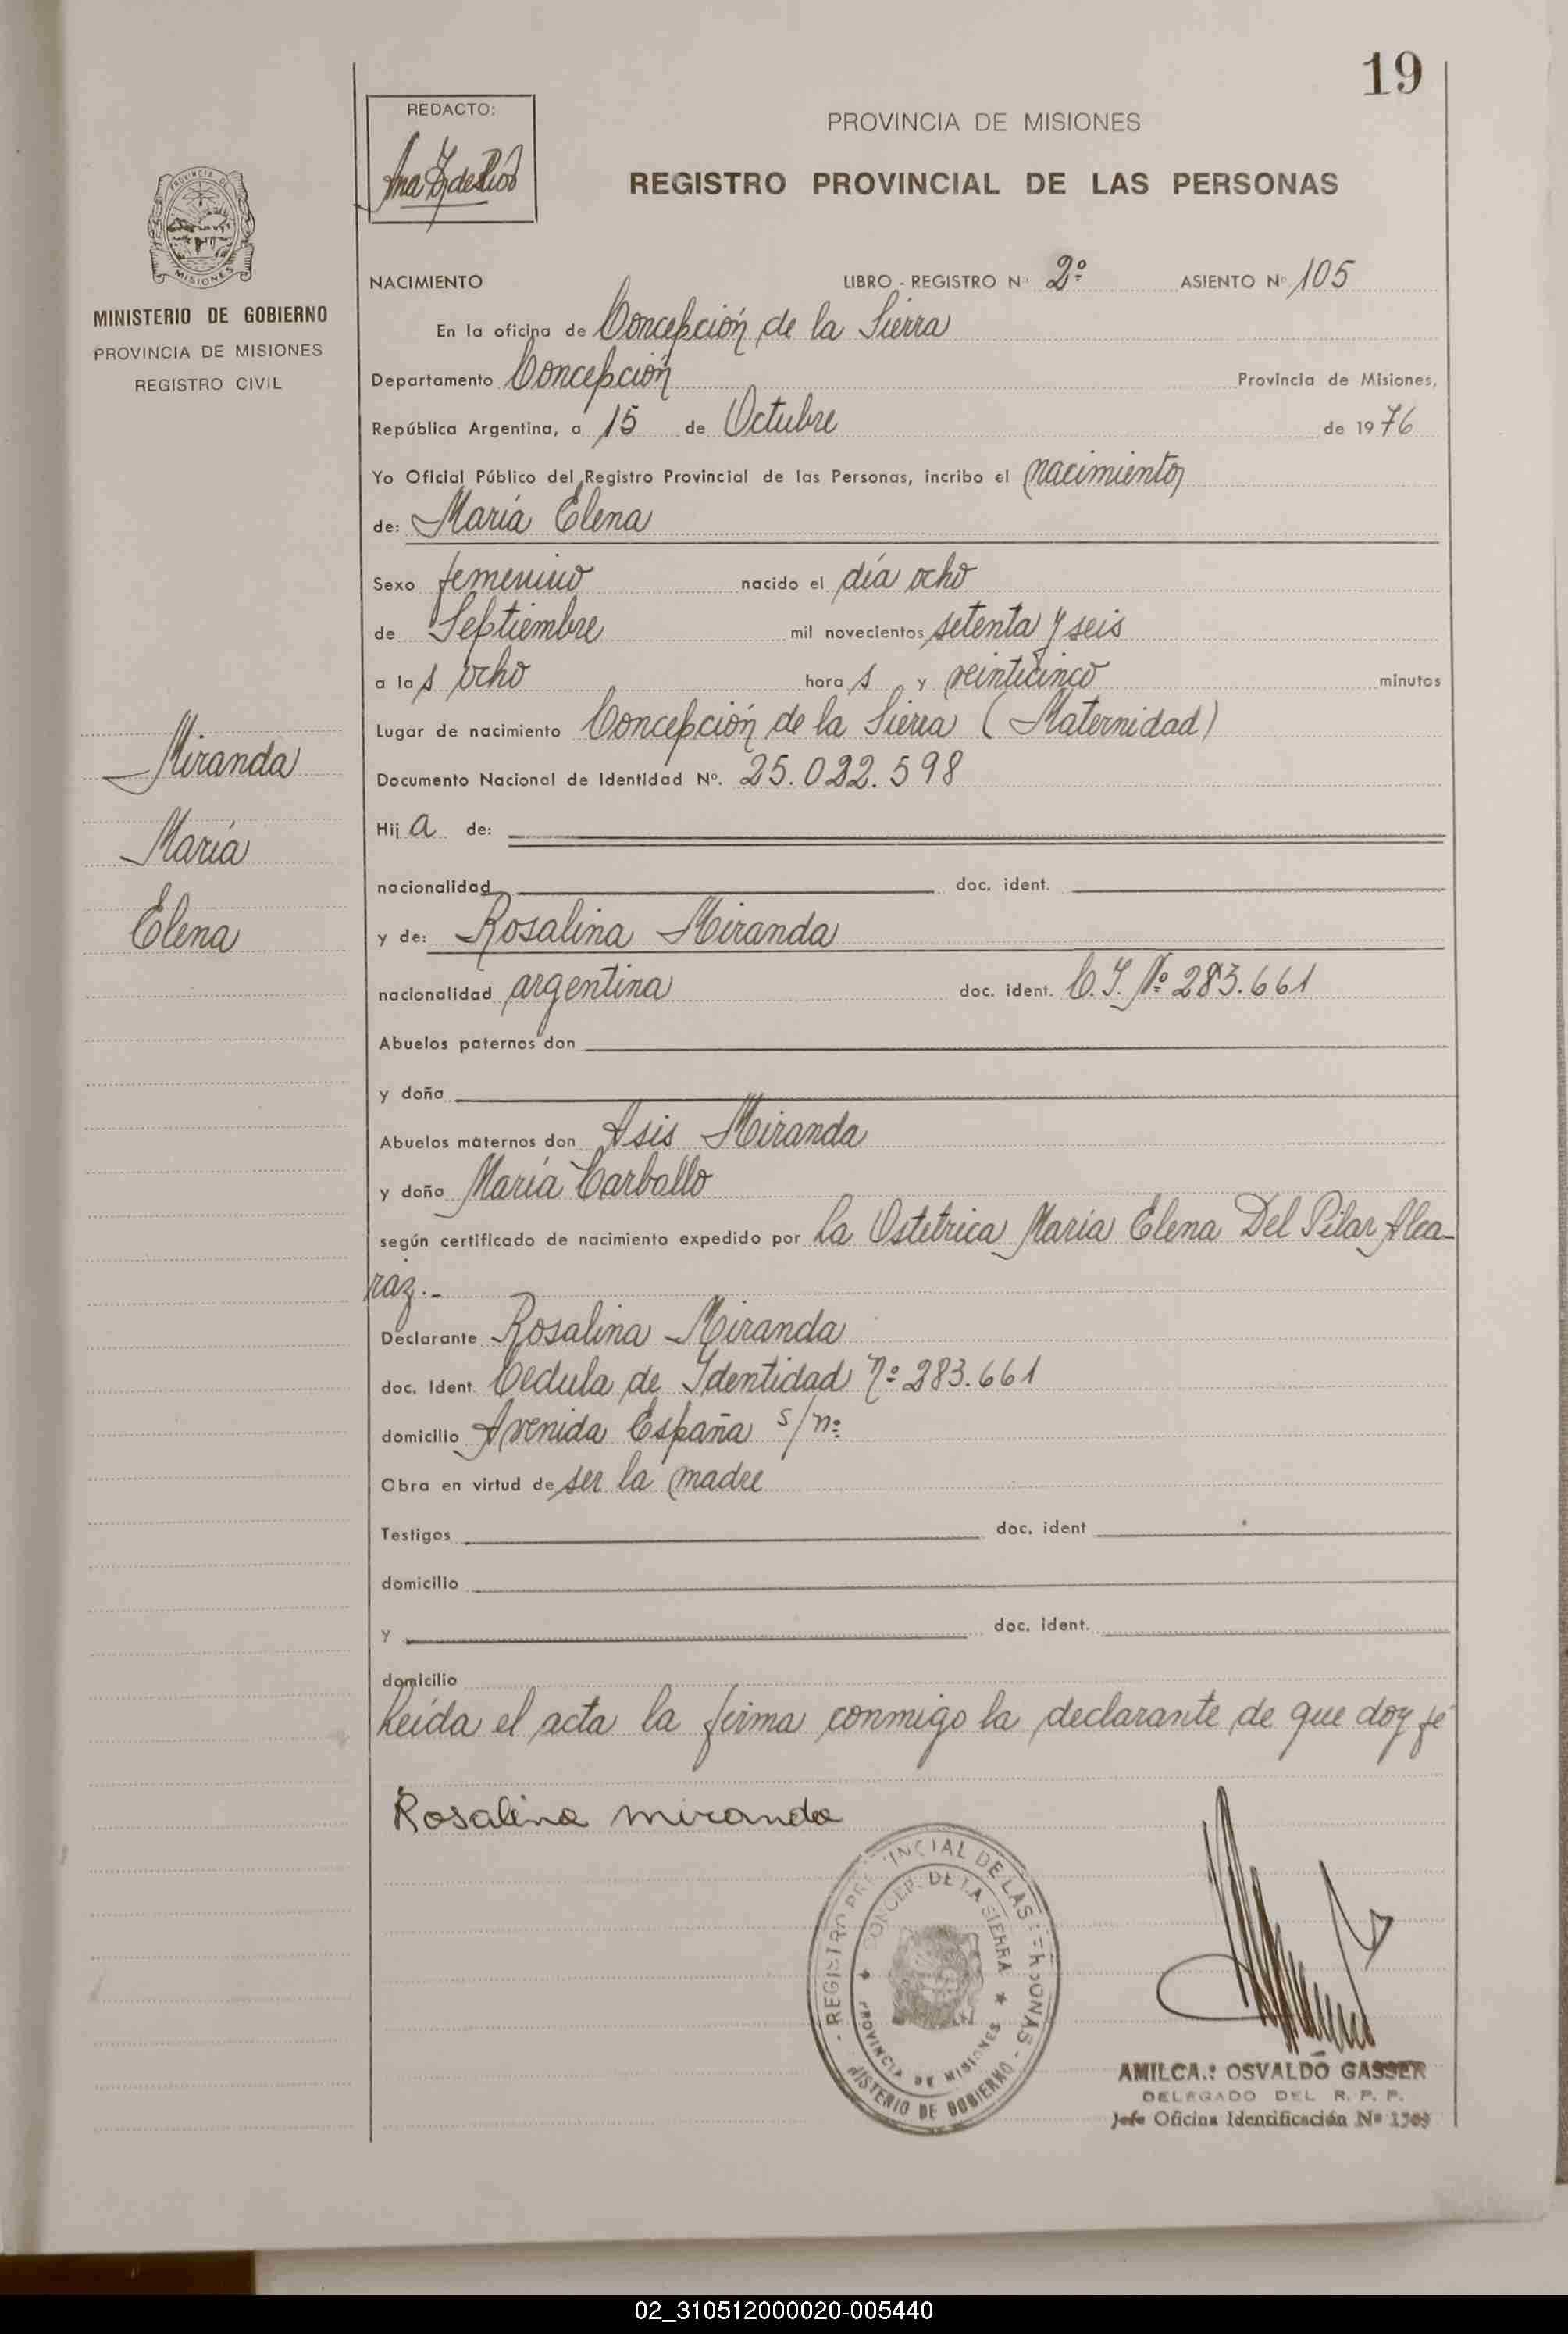 19
REDACTO:
PROVINCIA DE MISIONES
REGISTRO PROVINCIAL DE LAS PERSONAS
PROVINCIA DE
MISIONES
MINISTERIO DE GOBIERNO
PROVINCIA DE MISIONES
REGISTRO CIVIL
Miranda
María
Elena
NACIMIENTO LIBRO - REGISTRO N° 2º ASIENTO Nº 105
En la oficina de Concepción de la Sierra
Departamento Concepción Provincia de Misiones,
República Argentina, a 15 de Octubre de 1976
Yo Oficial Público del Registro Provincial de las Personas, incribo el nacimiento
de: María Elena
Sexo femenino nacido el día ocho
de Septiembre mil novecientos setenta y seis
a las ocho horas y veinticinco minutos
Lugar de nacimiento Concepción de la Sierra (Maternidad)
Documento Nacional de Identidad Nº. 25.022.598
Hija de:
nacionalidad doc. ident.
y de: Rosalina Miranda
nacionalidad argentina doc. ident. C.I. Nº 283.661
Abuelos paternos don
y doña
Abuelos maternos don Asis Miranda
y doña María Carballo
según certificado de nacimiento expedido por la Ostetrica María Elena Del Pilar Alca-
raz.-
Declarante Rosalina Miranda
doc. Ident. Cedula de Identidad nº 283.661
domicilio Avenida España s/nº
Obra en virtud de ser la madre
Testigos doc. ident
domicilio
y doc. ident.
domicilio
Leída el acta la firma conmigo la declarante de que doy fé
Rosalina miranda
- REGISTRO PROVINCIAL DE LAS PERSONAS -
CONCEP. DE LA SIERRA
PROVINCIA DE MISIONES
MINISTERIO DE GOBIERNO
AMILCA.: OSVALDO GASSER
DELEGADO DEL R. P. P.
Jefe Oficina Identificación Nº
02_310512000020-005440